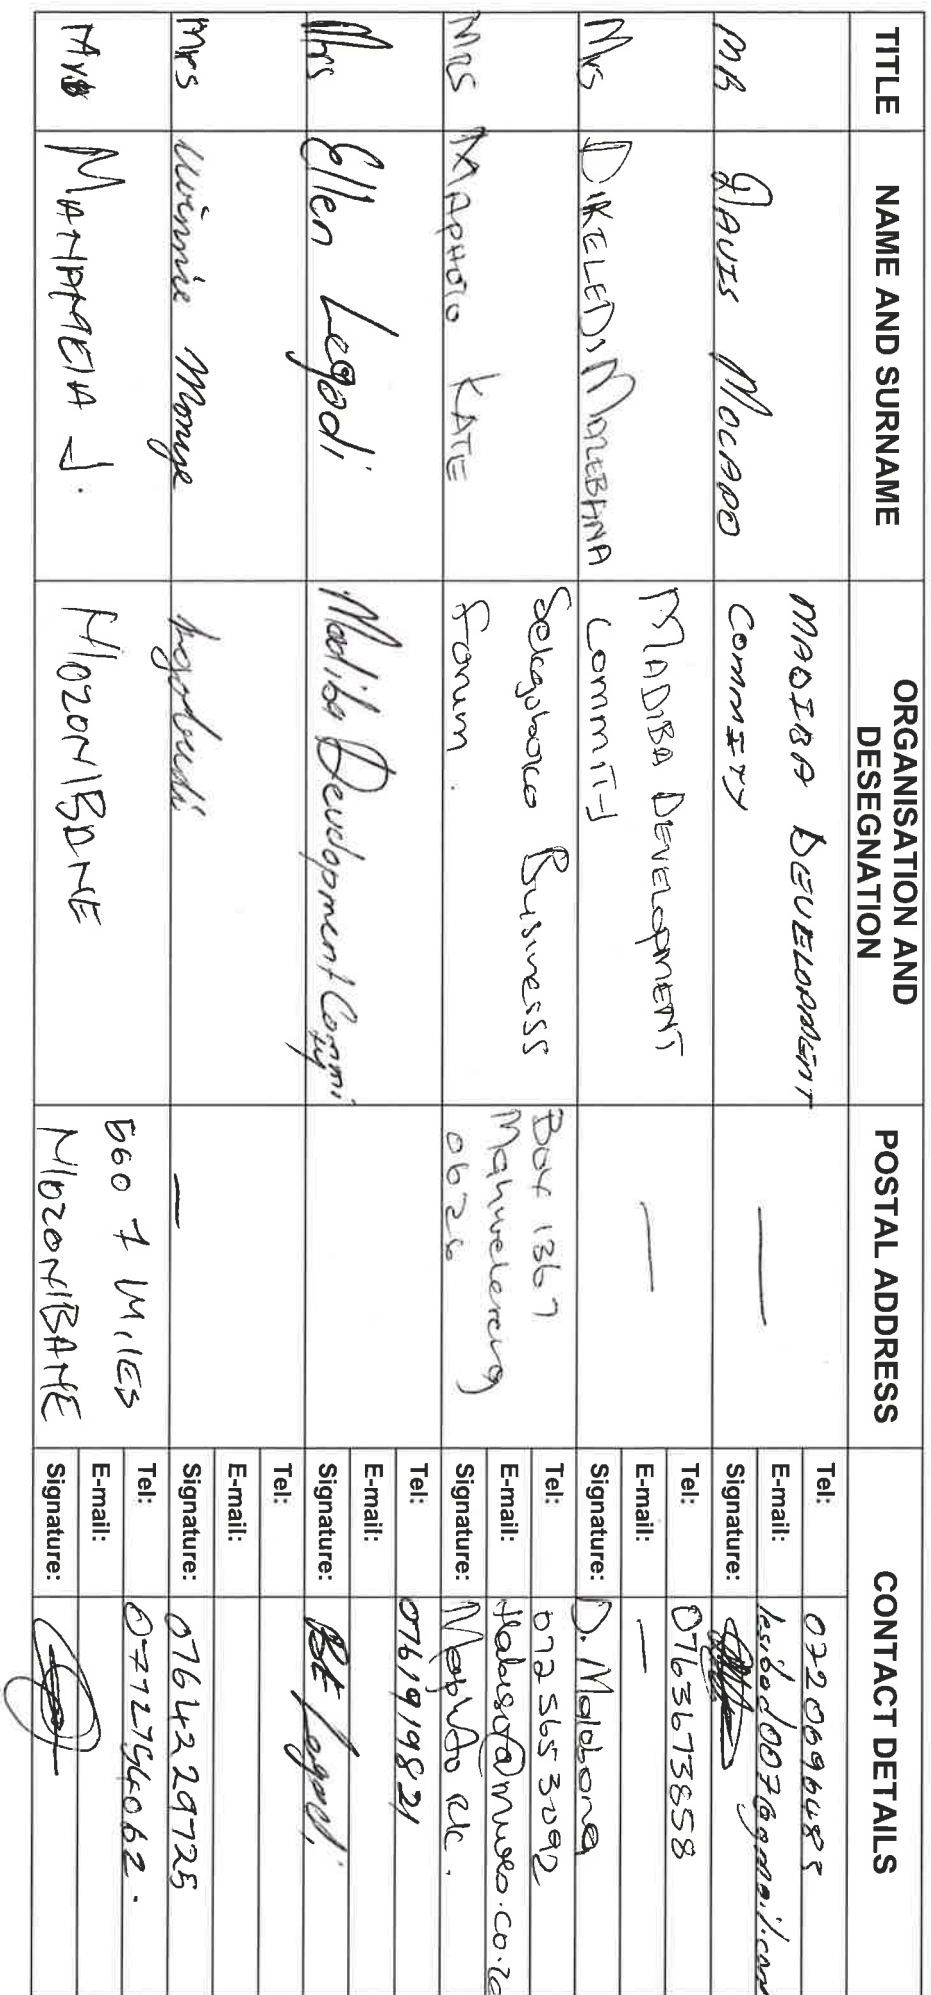 TITLE
NAME AND SURNAME
ORGANISATION AND
DESEGNATION
POSTAL ADDRESS
CONTACT DETAILS
MR
DAVIS MOCADO
MADIBA DEVELOPMENT
COMMITY
—
Tel: 0720696485
E-mail: lesibad007@gmail.com
Signature:
Mrs
DIKELEDI
MADIBA DEVELOPMENT
COMMITY
—
Tel: 0763673858
E-mail: —
Signature: D.
MRS
MAPHOTO KATE
Business
Forum.
Box 1367
Mahwelereng
0626
Tel: 0725653092
E-mail:
Signature: Maphoto RK.
Mrs
Ellen Legodi
Madiba Development Commi
ty
Tel: 0761919821
E-mail:
Signature: BE Legodi
Mrs
Winnie
—
Tel:
E-mail:
Signature: 0764229725
J.
560 7 Miles
Tel: 0772754062.
E-mail:
Signature: